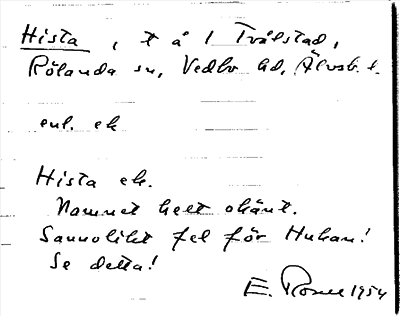 Hista, t å 1 Tvålstad,
Rölanda sn, Vedbo hd, Älvsb. l.
enl. ek
Hista ek.
Namnet helt okänt.
Sannolikt fel för Huhan!
Se detta!
E. Rosell 1954